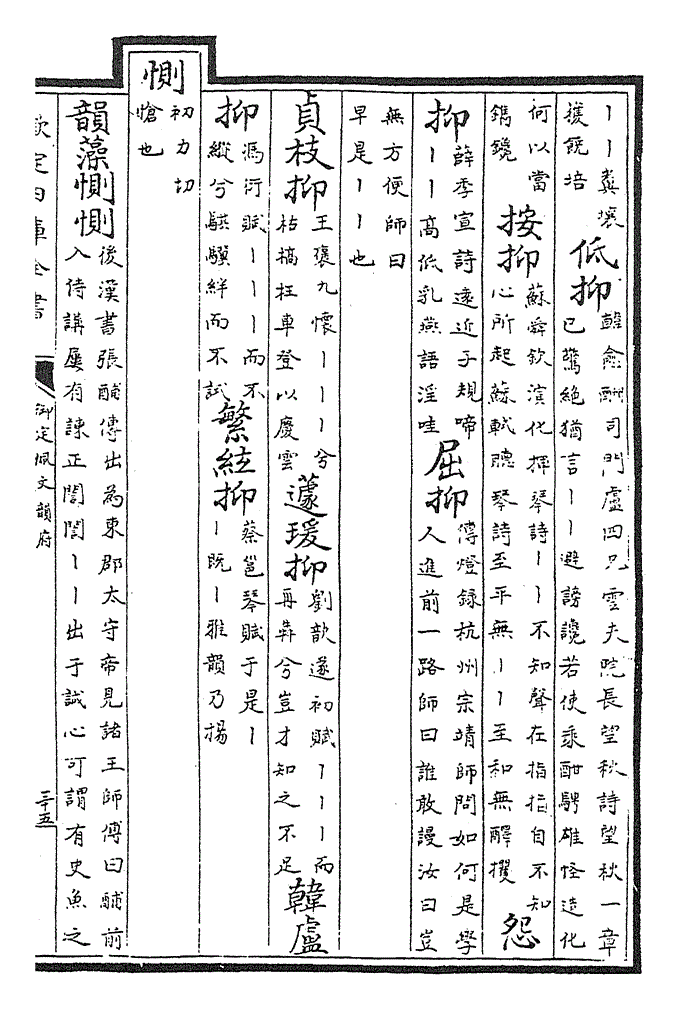 丨丨糞壤
獲饒培
低抑
韓愈酬司門盧四兄雲夫院長望秋詩望秋一章
已驚絕猶言丨丨避謗讒若使乘酣騁雄怪造化
何以當
鐫鑱
按抑
蘇舜欽演化揮琴詩丨丨不知聲在指指自不知
心所起蘇軾聽琴詩至平無丨丨至和無醳攫
怨
抑
薛季宣詩遠近子規啼
丨丨高低乳燕語淫哇
屈抑
傳燈録杭州宗靖師問如何是學
人進前一路師曰誰敢謾汝曰豈
無方便師曰
早是丨丨也
貞枝抑
王褒九懷丨丨丨兮
枯槁枉車登以慶雲
蘧瑗抑
劉歆遂初賦丨丨丨而
再犇兮豈才知之不足
韓盧
抑
馮衍賦丨丨丨而不
縱兮騏驥絆而不試
繁絃抑
蔡邕琴賦于是丨
丨既丨雅韻乃揚
惻
初力切
愴也
韻藻惻惻
後漢書張酺傳出為東郡太守帝見諸王師傅曰酺前
入侍講屢有諫正誾誾丨丨出于誠心可謂有史魚之
欽定四庫全書
御定佩文韻府
三十五